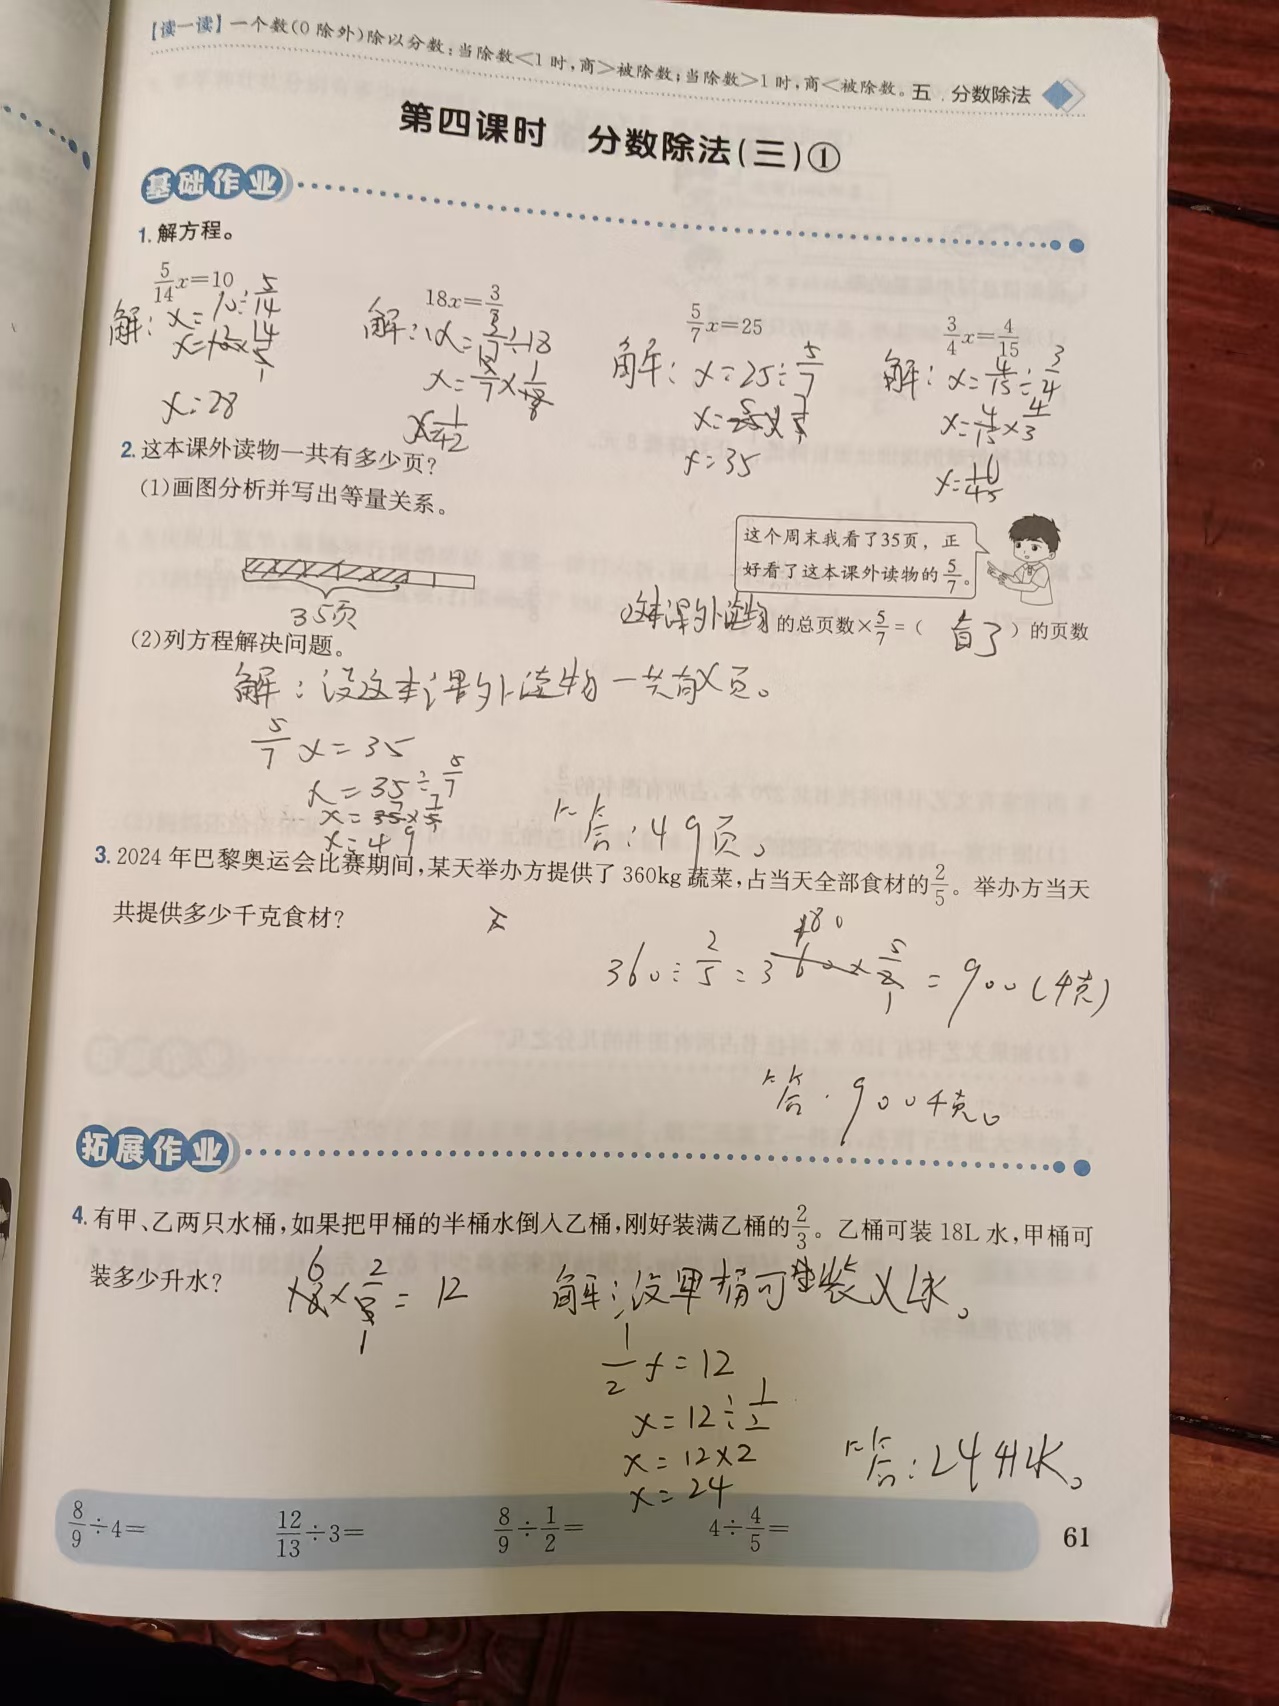 【读一读】一个数(0除外)除以分数:当除数<1时,商>被除数;当除数>1时,商<被除数。五 分数除法
第四课时 分数除法(三)①
基础作业
1.解方程。
5/14x=10 18x=3/ 5/7x=25 3/4x=4/15
解:x=10÷5/14 解:x=3/7÷18 解:x=25÷5/7 解:x=4/15÷3/4
x=10×14/5 x=3/7×1/18 x=25×7/5 x=4/15×4/3
x=28 x=1/42 x=35 x=16/45
2.这本课外读物一共有多少页?
(1)画图分析并写出等量关系。
这个周末我看了35页,正
好看了这本课外读物的5/7。
35页
这本课外读物的总页数×5/7=( 看了 )的页数
(2)列方程解决问题。
解:设这本课外读物一共有x页。
5/7x=35
x=35÷5/7
x=35×7/5
x=49
答:49页。
3.2024年巴黎奥运会比赛期间,某天举办方提供了360kg蔬菜,占当天全部食材的2/5。举办方当天
共提供多少千克食材?
180
360÷2/5=360×5/2=900(千克)
1
答:900千克。
拓展作业
4.有甲、乙两只水桶,如果把甲桶的半桶水倒入乙桶,刚好装满乙桶的2/3。乙桶可装18L水,甲桶可
装多少升水?
6
18×2/3=12
1
解:设甲桶可装x L水。
1/2x=12
x=12÷1/2
x=12×2
x=24
答:24升水。
8/9÷4= 12/13÷3= 8/9÷1/2= 4÷4/5=
61